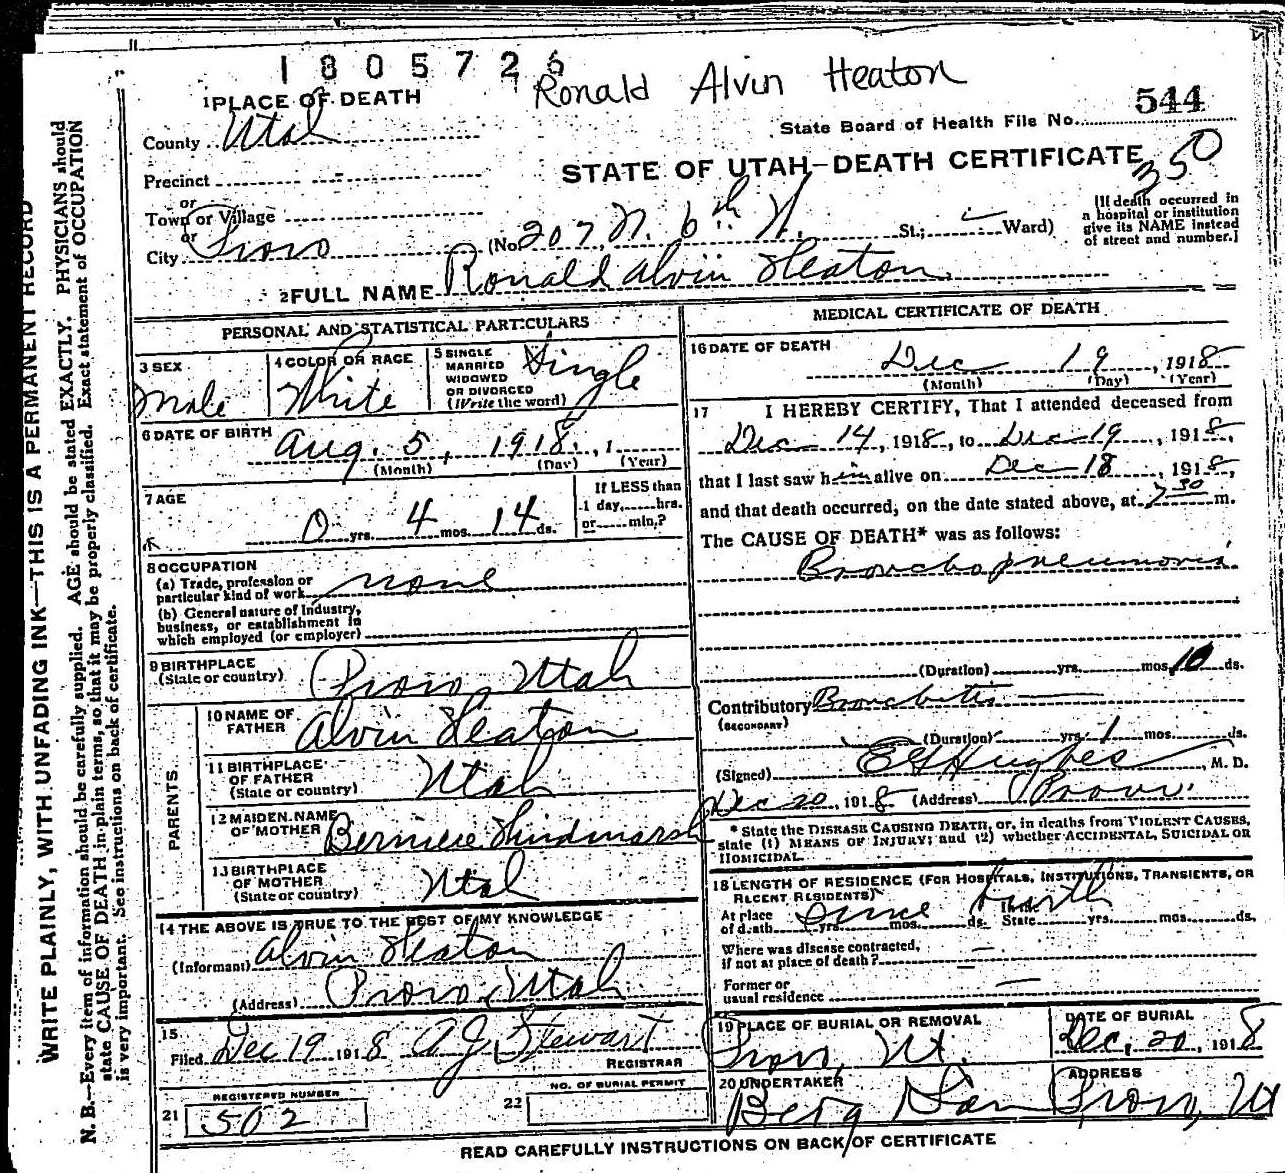 1805726
Ronald Alvin Heaton
1 PLACE OF DEATH
County Utah
State Board of Health File No. 544
STATE OF UTAH—DEATH CERTIFICATE
350
Precinct -
or
Town or Village
or
City Provo
(No. 207 N. 6th W. St.; Ward)
[If death occurred in
a hospital or institution
give its NAME instead
of street and number.]
2 FULL NAME Ronald Alvin Heaton
PERSONAL AND STATISTICAL PARTICULARS
3 SEX
Male
4 COLOR OR RACE
White
5 SINGLE
MARRIED
WIDOWED
OR DIVORCED
(Write the word)
Single
6 DATE OF BIRTH
Aug. 5, 1918, 1
(Month) (Day) (Year)
7 AGE
0 yrs. 4 mos. 14 ds.
If LESS than
1 day, hrs.
or min.?
8 OCCUPATION
(a) Trade, profession or
particular kind of work none
(b) General nature of industry,
business, or establishment in
which employed (or employer)
9 BIRTHPLACE
(State or country) Provo, Utah
PARENTS
10 NAME OF
FATHER Alvin Heaton
11 BIRTHPLACE
OF FATHER
(State or country) Utah
12 MAIDEN NAME
OF MOTHER Berniece Hindmarsh
13 BIRTHPLACE
OF MOTHER
(State or country) Utah
14 THE ABOVE IS TRUE TO THE BEST OF MY KNOWLEDGE
(Informant) Alvin Heaton
(Address) Provo, Utah
15
Filed Dec 19 1918 A J Stewart
REGISTRAR
REGISTERED NUMBER
21 502
NO. OF BURIAL PERMIT
22
MEDICAL CERTIFICATE OF DEATH
16 DATE OF DEATH
Dec 19, 1918
(Month) (Day) (Year)
17 I HEREBY CERTIFY, That I attended deceased from
Dec 14, 1918, to Dec 19, 1918,
that I last saw him alive on Dec 18, 1918,
and that death occurred, on the date stated above, at 7 30 m.
The CAUSE OF DEATH* was as follows:
Bronchopneumonia
(Duration) yrs. mos. 10 ds.
Contributory Bronchitis
(SECONDARY)
(Duration) yrs. 1 mos. ds.
(Signed) E G Hughes, M. D.
Dec 20, 1918 (Address) Provo.
* State the DISEASE CAUSING DEATH, or, in deaths from VIOLENT CAUSES,
state (1) MEANS OF INJURY; and (2) whether ACCIDENTAL, SUICIDAL OR
HOMICIDAL.
18 LENGTH OF RESIDENCE (FOR HOSPITALS, INSTITUTIONS, TRANSIENTS, OR
RECENT RESIDENTS)
At place
of death since birth yrs. mos. ds. State yrs. mos. ds.
Where was disease contracted,
if not at place of death? —
Former or
usual residence —
19 PLACE OF BURIAL OR REMOVAL
Provo, Ut.
DATE OF BURIAL
Dec. 20, 1918
20 UNDERTAKER
Berg
ADDRESS
Provo, Ut
READ CAREFULLY INSTRUCTIONS ON BACK OF CERTIFICATE
WRITE PLAINLY, WITH UNFADING INK—THIS IS A PERMANENT RECORD
N. B.—Every item of information should be carefully supplied. AGE should be stated EXACTLY. PHYSICIANS should
state CAUSE OF DEATH in plain terms, so that it may be properly classified. Exact statement of OCCUPATION
is very important. See instructions on back of certificate.